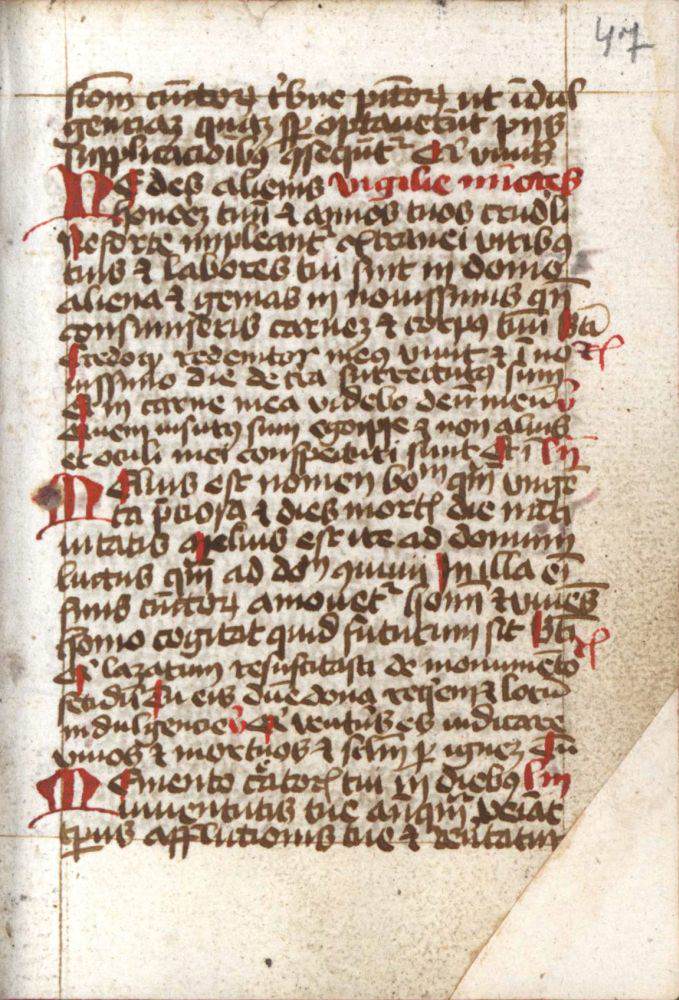 47
sionem cūctoꝝ tͥbue pctōꝝ ut īdul
genciaꝫ quaꝫ sp optauerūt piis
supplicacōibꝰ ꝯsequāt᷑ Qͥ viuis
Ne des alienis vigilie mīores
honorez tuū ⁊ annos tuos crudeli
Neforte impleant᷑ extranei viribꝰ
tuis ⁊ labores tui sint in domo
aliena ⁊ gemas in nouissimis qn̄
consumpseris carnez ⁊ corpꝰ tuū
Credo qꝫ redemptor meus viuit ⁊ ī no
uissimo die de tra surrecturꝰ sum
Et in carne mea videbo deū meū v̄
Quem visurꝰ sum ego ip̄e ⁊ non alius
et oculi mei conspecturi sunt Et ī lc̄
Melius est nomen boⁿ qm̄ vngē
ta p̄ciosa ⁊ dies mort᷑ die nati
uitatis Melius est ire ad domum
luctus qm̄ ad doⁿ ꝯuiuii In illa eī
finis cūctoꝝ amonet᷑ homī ⁊ viuēs
homo cogitat quid futurum sit
Qͥ lazarum resuscitasti de monumēto
fetidū Tu eis dn̄e dona requieꝫ ⁊ locū
indulgencie v̄ Qͥ ventūs es iudicare
viuos ⁊ mortuos ⁊ sclm̄ ꝑ ignez Tu
Memento creatorꝭ tui in diebꝰ lcc̄
iuuentutis tue an̄qm̄ veiāt
tp̄us afflictionis tue ⁊